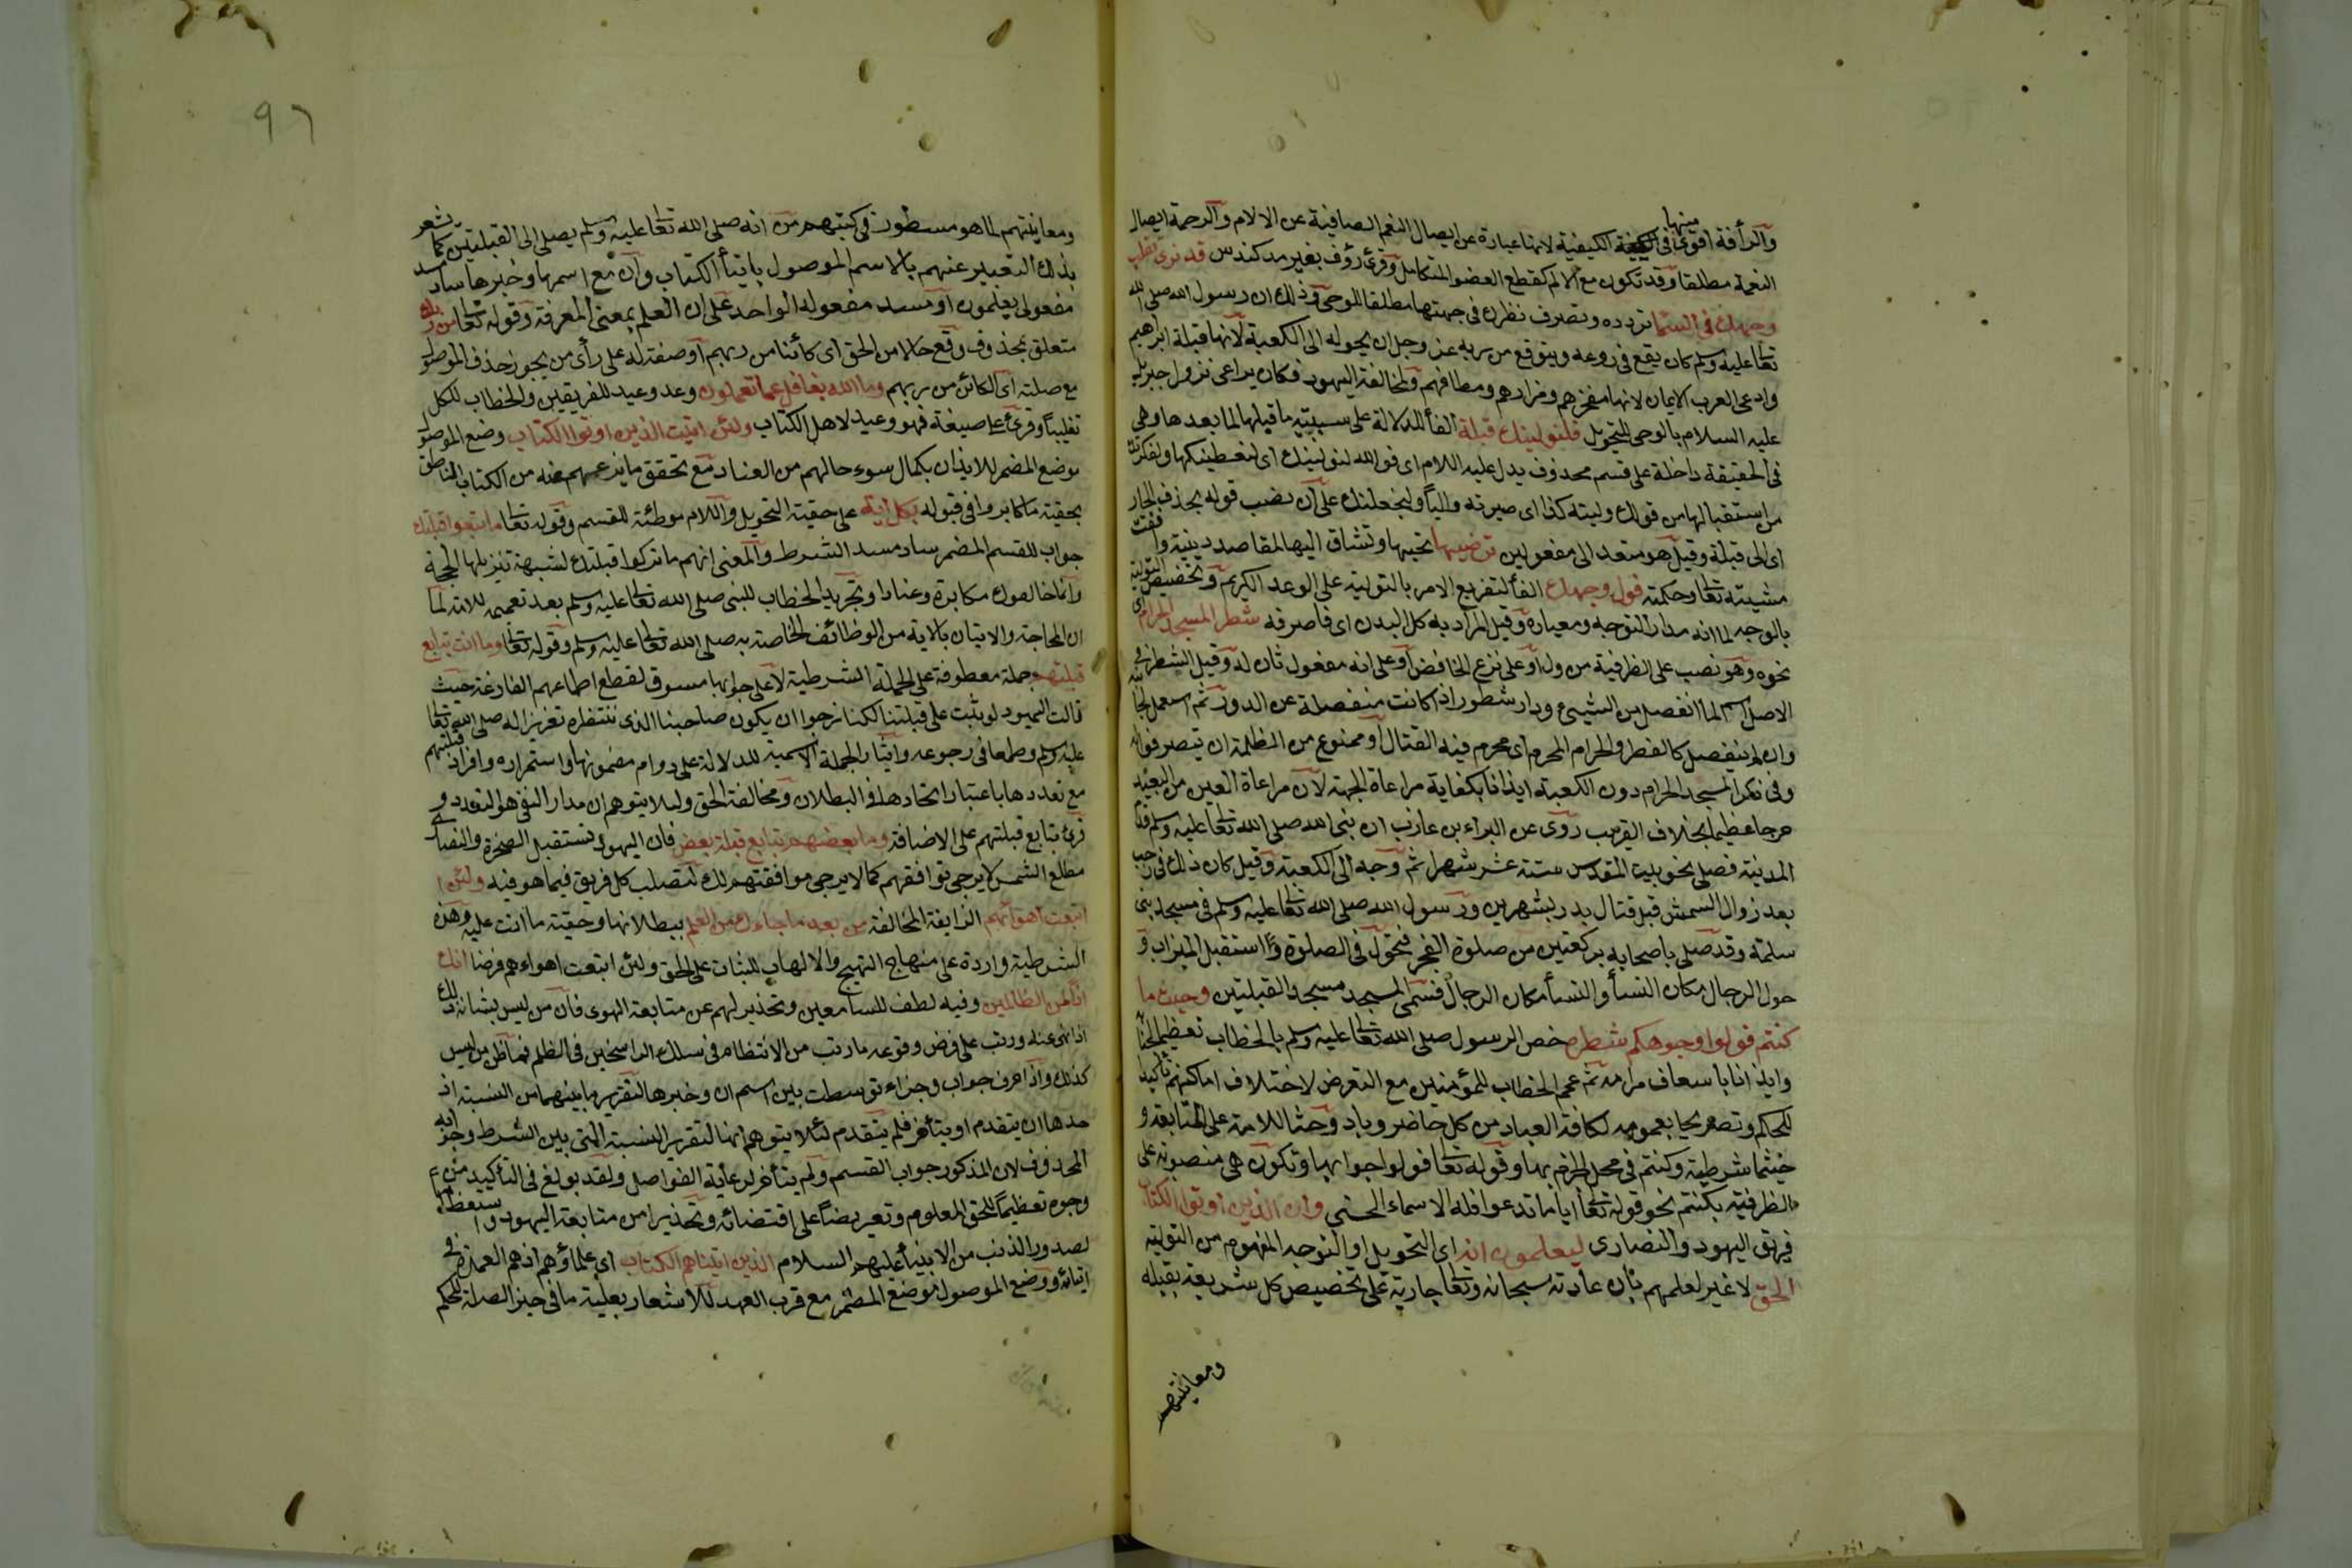 والرأفة اقوى منها فى الكيفية لانها عبارة عن ايصال النعم الصافية عن الالام والرحمة ايصال
النعمة مطلقا وقد تكون مع الالم كقطع العضو المتاكل وقرئ رؤف بغير مد كندس قد نرى تقلب
وجهك فى السما تردده وتصرف نظرك فى جهتها مطلقا للوحى وذلك ان رسول الله صلى الله
تعا عليه وسلم كان يقع فى روعه ويتوقع من ربه عز وجل ان يحوله الى الكعبة لانها قبلة ابراهيم
وادعى العرب الايمان لانها مفخرهم ومزارهم ومطافهم ولمخالفة اليهود فكان يراعى نزول جبريل
عليه السلام بالوحى للتحويل فلنولينك قبلة الفأ للدلالة على سببية ما قبلها لما بعدها وهى
فى الحقيقة داخلة على قسم محذوف يدل عليه اللام اى فوالله لنولينك اى لنعطينكها ولنمكننك
من استقبالها من قولك وليته كذا اى صيرته واليا له او لنجعلنك على ان نصب قوله بحذف الجار
اى الى قبلة وقيل هو متعد الى مفعولين ترضيها تحبها وتشتاق اليها لمقاصد دينية وافقت
مشيته تعا وحكمته فول وجهك الفأ لتفريع الامر بالتولية على الوعد الكريم وتخصيص التولية
بالوجه لما انه مدار التوجه ومعياره وقيل المراد به كل البدن اى فاصرفه شطر المسجد الحرام اى
نحوه وهو نصب على الظرفية من ول او على نزع الخافض او على انه مفعول ثان له وقيل الشطر فى
الاصل اسم لما انفصل من الشيئ ودار شطور اذا كانت منفصلة عن الدور ثم استعمل لجانبه
وان لم ينفصل كالقطر والحرام المحرم اى محرم فيه القتال او ممنوع من الظلمة ان يتعرضوا له
وفى ذكر المسجد الحرام دون الكعبة ايذانا بكفاية مراعاة الجهة لان مراعاة العين من البعيد
حرجا عظيما بخلاف القريب روى عن البراء بن عازب ان نبى الله صلى الله تعا عليه وسلم قدم
المدينة فصلى نحو بيت المقدس ستة عشر شهرا ثم وجه الى الكعبة وقيل كان ذلك فى رجب
بعد زوال الشمس قبل قتال بدر بشهرين ورسول الله صلى الله تعا عليه وسلم فى مسجد بنى
سلمة وقد صلى باصحابه بركعتين من صلوة الفجر فتحول فى الصلوة واستقبل الميزاب و
حول الرجال مكان النسأ والنسأ مكان الرجال فسمى المسجد مسجد القبلتين وحيث ما
كنتم فولوا وجوهكم شطره خص الرسول صلى الله تعا عليه وسلم بالخطاب تعظيما لجنابه
وايذانا باسعاف مرامه ثم عمم الخطاب للمؤمنين مع التعرض لاختلاف اماكنهم تأكيدا
للحكم وتصريحا بعمومه لكافة العباد من كل حاضر وباد وحثا للامة على المتابعة و
حيثما شرطية وكنتم فى محل الجزم بها وقوله تعا فولوا جوابها وتكون هى منصوبة على
الظرفية بكنتم نحو قوله تعا اياما تدعوا فله الاسماء الحسنى وان الذين اوتوا الكتاب
فريق اليهود والنصارى ليعلمون انه اى التحويل او التوجه المفهوم من التولية
الحق لا غير لعلمهم بان عادته سبحانه وتعا جارية على تخصيص كل شريعة بقبلة
ومعاينتهم
٩٦
ومعاينتهم لما هو مسطور فى كتبهم من انه صلى الله تعا عليه وسلم يصلى الى القبلتين كما يشعر
بذلك التعبير عنهم بالاسم الموصول بايتأ الكتاب وان مع اسمها وخبرها ساد مسد
مفعولى يعلمون او مسد مفعوله الواحد على ان العلم بمعنى المعرفة وقوله تعا من ربهم
متعلق بمحذوف وقع حالا من الحق اى كائنا من ربهم او صفة له على رأى من يجوز حذف الموصول
مع صلته اى الكائن من ربهم وما الله بغافل عما تعملون وعد وعيد للفريقين والخطاب للكل
تغليبا وقرئ على صيغة فهو وعيد لاهل الكتاب ولئن اتيت الذين اوتوا الكتاب وضع الموصول
موضع المضمر للايذان بكمال سوء حالهم من العناد مع تحقق ما يزعهم عنه من الكتاب الناطق
بحقية ما كابروا فى قبوله بكل اية على حقية التحويل واللام موطئة للقسم وقوله تعا ما تبعوا قبلتك
جواب للقسم المضمر ساد مسد الشرط والمعنى انهم ما تركوا قبلتك لشبهة تزيلها الحجة
وانما خالفوك مكابرة وعنادا وتجريد الخطاب للنبى صلى الله تعا عليه وسلم بعد تعميمه للامة لما
ان المحاجة والاتيان بالاية من الوظائف الخاصة به صلى الله تعا عليه وسلم وقوله تعا وما انت بتابع
قبلتهم جملة معطوفة على الجملة الشرطية لا على جوابها مسوق لقطع اطماعهم الفارغة حيث
قالت اليهود لو ثبت على قبلتنا لكنا نرجوا ان يكون صاحبنا الذى ننتظره تغريرا له صلى الله تعا
عليه وسلم وطمعا فى رجوعه وايثار الجملة الاسمية للدلالة على دوام مضمونها واستمراره وافراد قبلتهم
مع تعددها باعتبار اتحادها فى البطلان ومخالفة الحق ولئلا يتوهم ان مدار النفى هو التعدد و
قرئ بتابع قبلتهم على الاضافة وما بعضهم بتابع قبلة بعض فان اليهود تستقبل الصخرة والنصارى
مطلع الشمس لا يرجى توافقهم كما لا يرجى موافقتهم لك لتصلب كل فريق فيما هو فيه ولئن
اتبعت اهوائهم الزايغة المخالفة من بعد ما جاءك من العلم ببطلانها وحقية ما انت عليه وهذه
الشرطية واردة على منهاج التهييج والالهاب للثبات على الحق ولئن اتبعت اهواءهم فرضا انك
اذا لمن الظالمين وفيه لطف للسامعين وتحذير لهم عن متابعة الهوى فان من ليس بشانه ذلك
اذا نهى عنه ورتب على فرض وقوعه ما رتب من الانتظام فى سلك الراسخين فى الظلم فما ظن من ليس
كذلك واذا حرف جواب وجزاء توسطت بين اسم ان وخبرها لتقرير ما بينهما من النسبة اذ
حدها ان يتقدم او يتأخر فلم يتقدم لئلا يتوهم انها لتقرير النسبة التى بين الشرط وجزائه
المحذوف لان المذكور جواب القسم ولم يتأخر لرعاية الفواصل ولقد بولغ فى التأكيد من
وجوه تعظيما للحق المعلوم وتعريضا على اقتضائه وتحذيرا من متابعة اليهود واستعظاما
لصدور الذنب من الانبيأ عليهم السلام الذين اتيناهم الكتاب اى علماؤهم اذ هم العمدة فى
ايتائه ووضع الموصول موضع المضمر مع قرب العهد للاشعار بعلية ما فى حيز الصلة للحكم